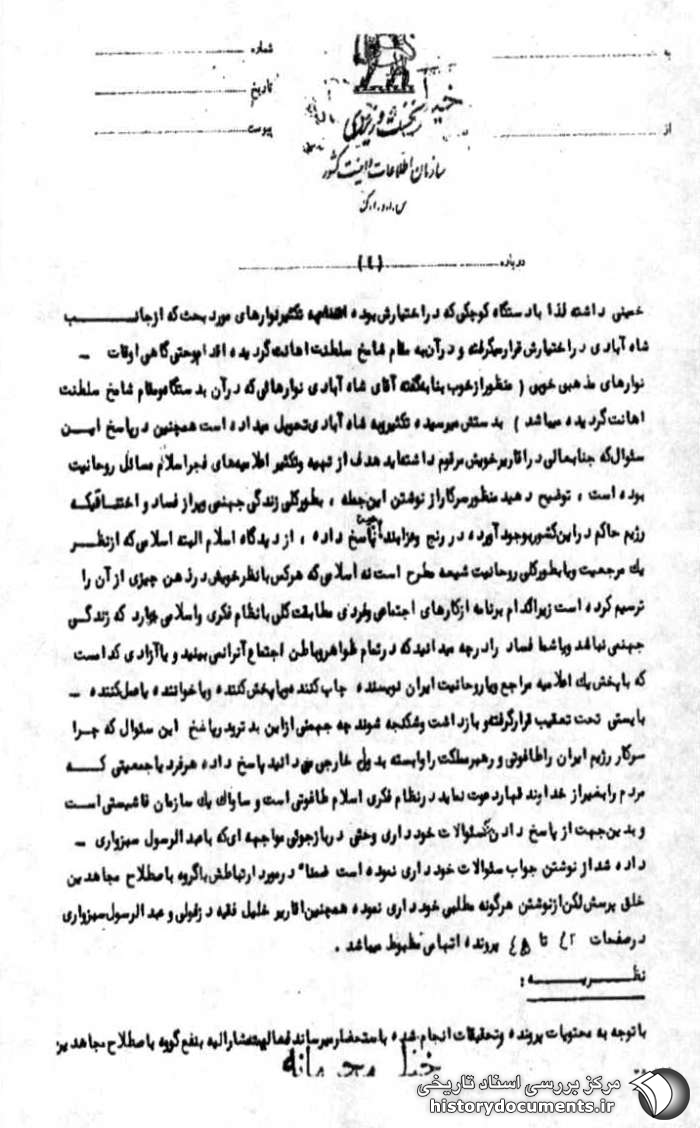 به
شماره
تاریخ
از
پیوست
نخست وزیری
سازمان اطلاعات و امنیت کشور
س.ا.و.ا.ک
درباره (٤)
خمینی داشته لذا با دستگاه کوچکی که در اختیارش بوده به تکثیر نوارهای مورد بحث که از جانب
شاه آبادی در اختیارش قرار میگرفته و در آن به مقام شامخ سلطنت اهانت گردیده اقدام وحتی گاهی اوقات -
نوارهای مذهبی خوبی ( منظور از خوب بنا بگفته آقای شاه آبادی نوارهائی که در آن بدستگاه و مقام شامخ سلطنت
اهانت گردیده میباشد ) بدستش میرسیده تکثیر و به شاه آبادی تحویل میداده است همچنین در پاسخ ایـن
سئوال که جنابعالی در اقاریر خویش مرقوم داشته اید هدف از تهیه و تکثیر اعلامیه های فجر اسلام مسائل روحانیت
بوده است ، توضیح دهید منظور سرکار از نوشتن این جمله ، بطور کلی زندگی جهنمی و پر از فساد و اختناقیکـه
رژیم حاکم در این کشور بوجود آورده در رنج و عذابند پاسخ داده ، از دیدگاه اسلام البته اسلامی که از نظـر
یك مرجعیت و یا بطور کلی روحانیت شیعه مطرح است نه اسلامی که هر کس با نظر خویش در ذهن چیزی از آن را
ترسیم کرده است زیرا کدام برنامه از کارهای اجتماعی و فردی مطابقت کلی با نظام فکری و اسلامی دارد که زندگـی
جهنمی نباشد و یا شما فساد را در چه میدانید که در تمام ظواهر و باطن اجتماع آنرا نمی بینید و یا آزادی کدام است
که با پخش یك اعلامیه مراجع و یا روحانیت ایران نویسنده چاپ کننده و یا پخش کننده و یا خواننده یا عمل کننده -
بایستی تحت تعقیب قرار گرفته و بازداشت و شکنجه شوند چه جهنمی از این بدتر و در پاسخ این سئوال که چـرا
سرکار رژیم ایران را طاغوتی و رهبر مملکت را وابسته به دول خارجی می دانید پاسخ داده هر فرد یا جمعیتی کـه
مردم را بغیر از خداوند قهار دعوت نماید در نظام فکری اسلام طاغوتی است و ساواك یك سازمان فاشیستی است
و بدین جهت از پاسخ دادن به سئوالات خودداری و حتی در بازجوئی مواجهه ای که با عبدالرسول سبزواری -
داده شد از نوشتن جواب سئوالات خودداری نموده است ضمناً در مورد ارتباطش با گروه باصطلاح مجاهدین
خلق پرسش لکن از نوشتن هرگونه مطلبی خودداری نموده همچنین اقاریر خلیل فقیه دزفولی و عبدالرسول سبزواری
در صفحات ٤٢ تا ٤٥ پرونده اتهامی مظبوط میباشد .
نظـریـه :
با توجه به محتویات پرونده و تحقیقات انجام شده باستحضار میرساند فعالیت مشارالیه بنفع گروه باصطلاح مجاهدین
خیلی محرمانه
مرکز بررسی اسناد تاریخی
historydocuments.ir